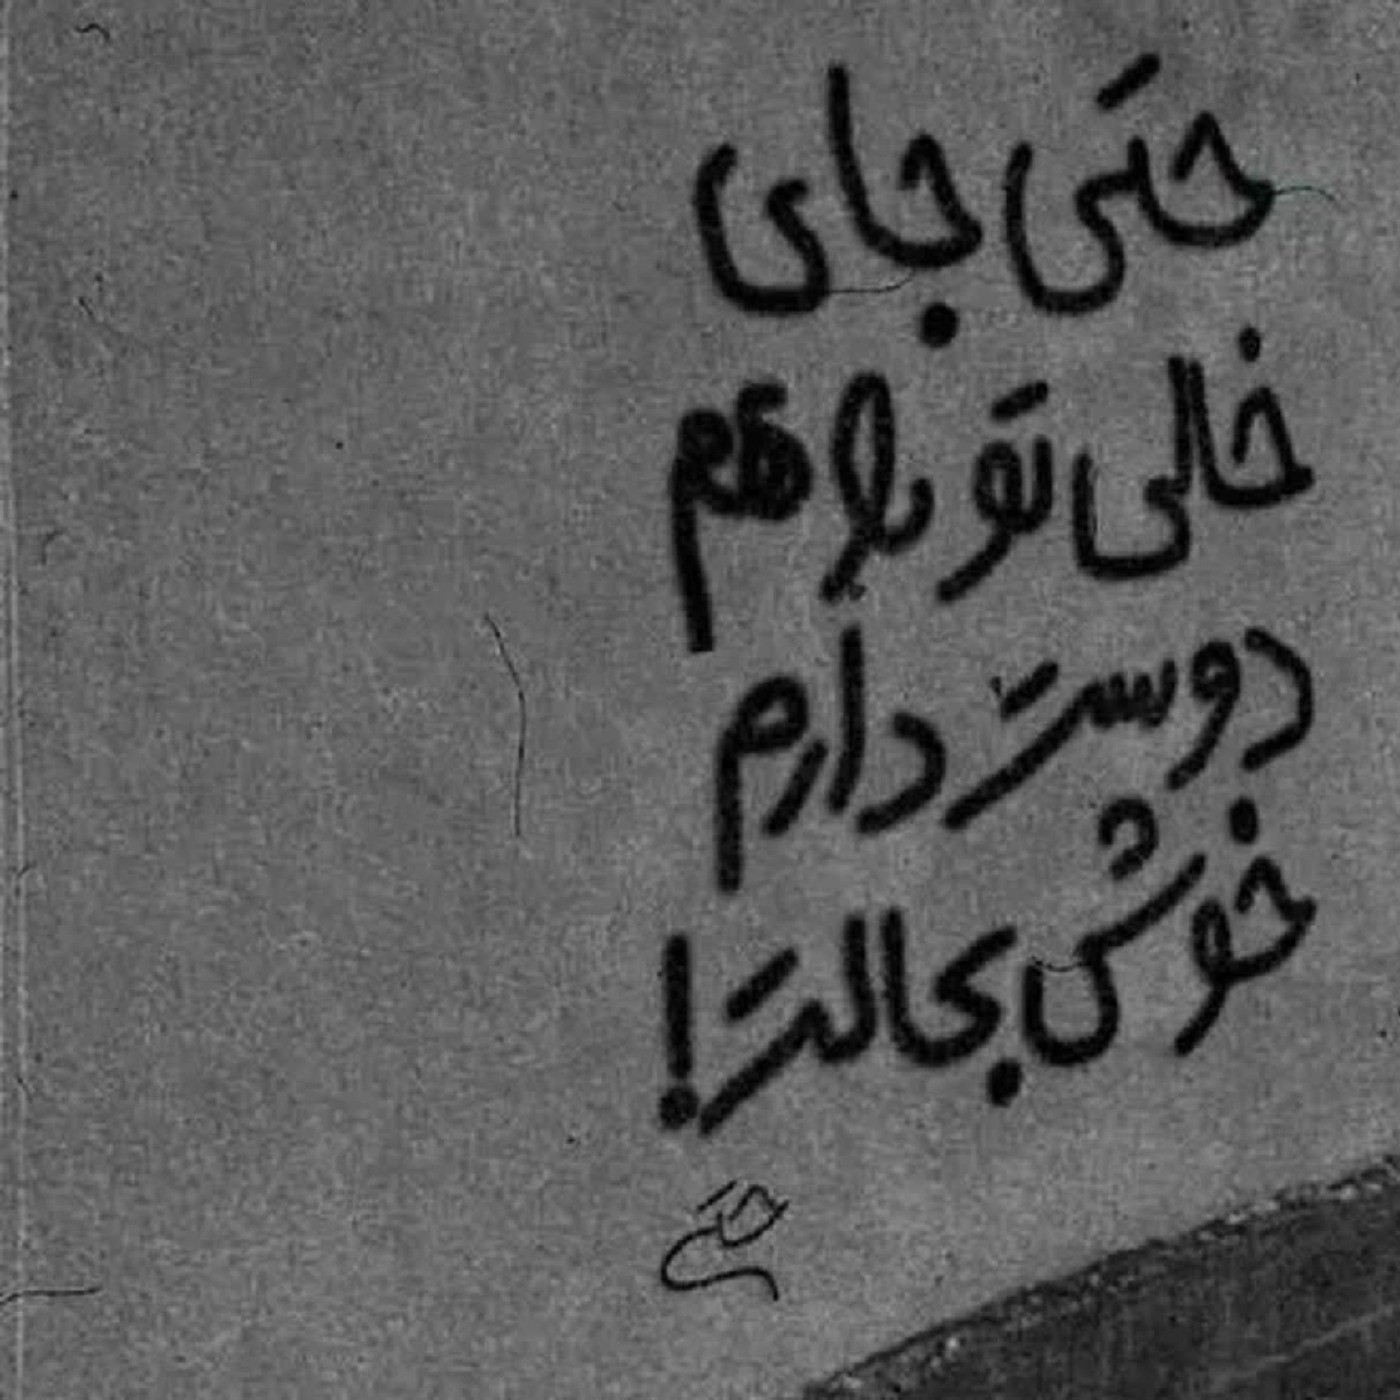 حتی جای
خالی تو را هم
دوست دارم
خوش بحالت!